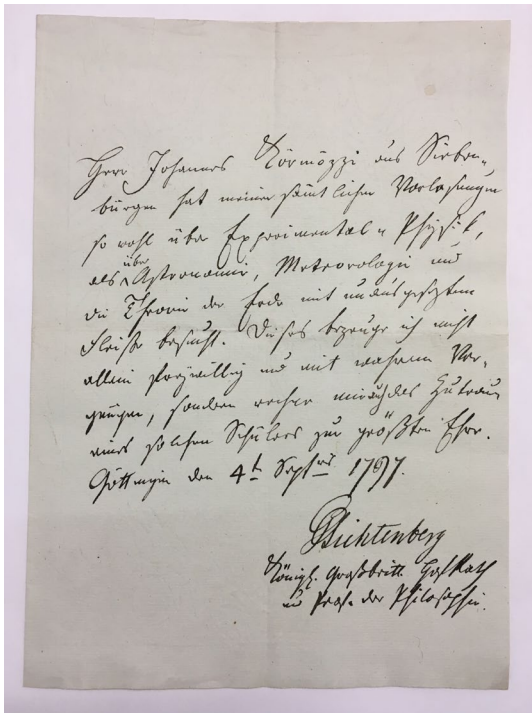 Herr Johannes Körmözzi aus Sieben-
bürgen hat meine sämtlichen Vorlesungen
so wohl über Experimental-Physik,
als über Astronomie, Meteorologie und
die Theorie der Erde mit unausgesetztem
Fleiße besucht. Dieses bezeuge ich nicht
allein freywillig und mit wahrem Ver-
gnügen, sondern rechne mir auch das Zutrauen
eines solchen Schülers zur größten Ehre.
Göttingen den 4t Septbr 1797.
GCLichtenberg
Königl. Großbritt. HofRath
und Prof. der Philosophie.